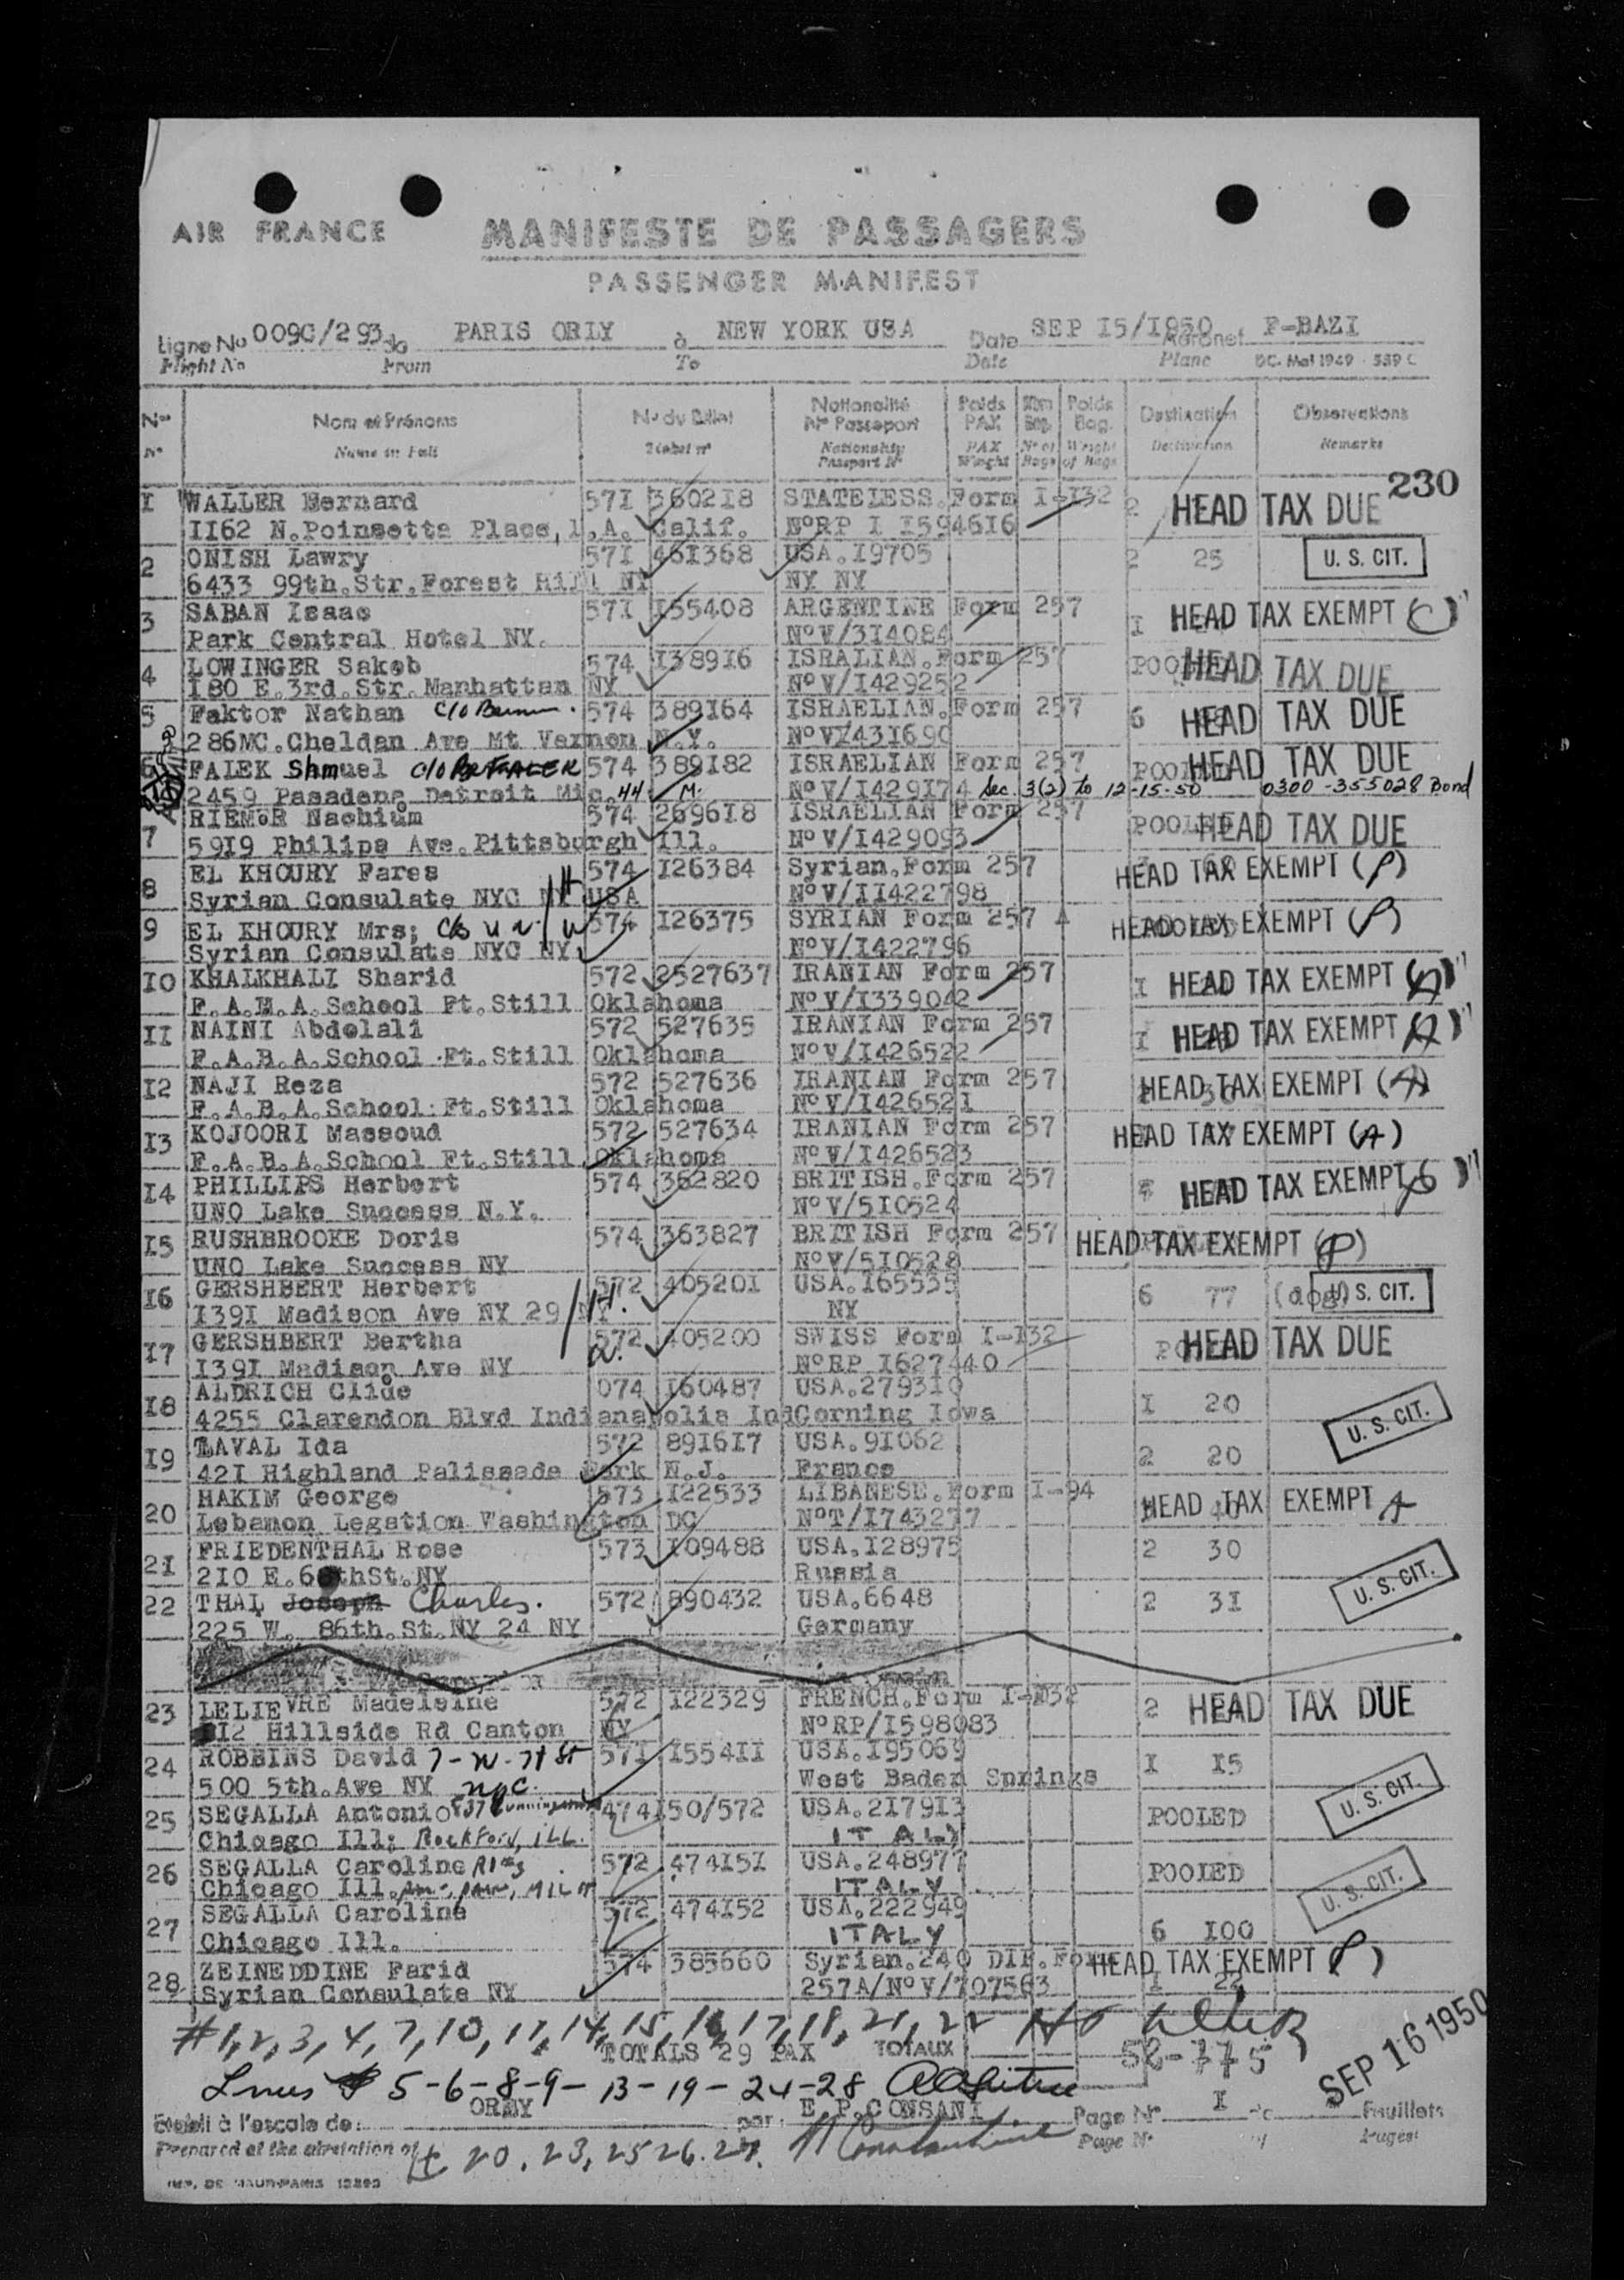 AIR FRANCE
MANIFESTE DE PASSAGERS
PASSENGER MANIFEST
Ligne No 0090/293 PARIS ORLY à NEW YORK USA Date SEP I5/I950 F-BAZI
Flight No From To Date Plane
Nom et Prénoms No du Billet Nationalité Poids Poids Destination Observations
No Passeport PAX Bag.
Name in Full Ticket no Nationality PAX No of Weight Destination Remarks
Passport No Weight Bags of Bags
230
I WALLER Bernard 57I 3602I8 STATELESS.Form I-I32 2 HEAD TAX DUE
II62 N.Poinsette Place,l.A. Calif. NoRP I I594616
2 ONISH Lawry 57I 46I368 USA.I9705 2 25 U. S. CIT.
6433 99th.Str.Forest Hill NY NY NY
3 SABAN Isaac 57I I55408 ARGENTINE Form 257 I HEAD TAX EXEMPT (C)
Park Central Hotel NY. NoV/3I4084
4 LOWINGER Sakob 574 I389I6 ISRALIAN.Form 257 POOLED HEAD TAX DUE
I80 E.3rd.Str.Manhattan NY NoV/I429252
5 Faktor Nathan 574 389I64 ISRAELIAN.Form 257 6 HEAD TAX DUE
286MC.Cheldan Ave Mt Vernon N.Y. NoV/43I690
6 FALEK Shmuel 574 389I82 ISRAELIAN Form 257 POOLED HEAD TAX DUE
2459 Pasadena Detroit Mic. NoV/I429I74 Sec. 3(2) to 12-15-50 0300-355028 Bond
7 RIEMER Nachium 574 2696I8 ISRAELIAN Form 257 POOLED HEAD TAX DUE
59I9 Philips Ave.Pittsburgh Ill. NoV/I429093
8 EL KHOURY Fares 574 I26384 Syrian.Form 257 HEAD TAX EXEMPT (P)
Syrian Consulate NYC NY USA NoV/II422798
9 EL KHOURY Mrs; 574 I26375 SYRIAN Form 257 A HEAD TAX EXEMPT (P)
Syrian Consulate NYC NY NoV/I422796
IO KHALKHALI Sharid 572 2527637 IRANIAN Form 257 I HEAD TAX EXEMPT (A)
F.A.B.A.School Ft.Still Oklahoma NoV/I339042
II NAINI Abdolali 572 527635 IRANIAN Form 257 I HEAD TAX EXEMPT (A)
F.A.B.A.School Ft.Still Oklahoma NoV/I426522
I2 NAJI Reza 572 527636 IRANIAN Form 257 HEAD TAX EXEMPT (A)
F.A.B.A.School Ft.Still Oklahoma NoV/I42652I
I3 KOJOORI Massoud 572 527634 IRANIAN Form 257 HEAD TAX EXEMPT (A)
F.A.B.A.School Ft.Still Oklahoma NoV/I426523
I4 PHILLIPS Herbert 574 362820 BRITISH.Form 257 HEAD TAX EXEMPT
UNO Lake Success N.Y. NoV/5I0524
I5 RUSHBROOKE Doris 574 363827 BRITISH Form 257 HEAD TAX EXEMPT (P)
UNO Lake Success NY NoV/5I0528
I6 GERSHBERT Herbert 572 40520I USA.I65535 6 77 (dog) U. S. CIT.
I39I Madison Ave NY 29 NY NY
I7 GERSHBERT Bertha 572 405200 SWISS Form I-I32 HEAD TAX DUE
I39I Madison Ave NY NoRP I627440
I8 ALDRICH Clide 074 I60487 USA.2793I0 I 20 U. S. CIT.
4255 Clarendon Blvd Indianapolis Ind Corning Iowa
I9 LAVAL Ida 572 89I6I7 USA.9I062 2 20
42I Highland Palissade Park N.J. France
20 HAKIM George 573 I22533 LIBANESE.Form I-94 HEAD TAX EXEMPT A
Lebanon Legation Washington DC NoT/I743277
2I FRIEDENTHAL Rose 573 I09488 USA.I28975 2 30 U. S. CIT.
2I0 E. thSt.NY Russia
22 THAL Joseph Charles. 572 890432 USA.6648 2 3I
225 W. 86th.St.NY 24 NY Germany
23 LELIEVRE Madeleine 572 I22329 FRENCH.Form I-I32 2 HEAD TAX DUE
I2 Hillside Rd Canton NY NoRP/I598083
24 ROBBINS David 7-W-7th St 57I I554II USA.I95069 I I5
500 5th.Ave NY NYC. West Baden Springs U. S. CIT.
25 SEGALLA Antonio 474I50/572 USA.2I79I3 POOLED
Chicago Ill; Rockford, ILL. ITALY
26 SEGALLA Caroline 572 474I5I USA.248977 POOLED
Chicago Ill. ITALY U. S. CIT.
27 SEGALLA Caroline 572 474I52 USA.222949 6 I00
Chicago Ill. ITALY
28 ZEINEDDINE Farid 574 385660 Syrian.240 DIP.Form HEAD TAX EXEMPT (P)
Syrian Consulate NY 257A/NoV/707563 I 22
#1,2,3,4,7,10,11,14,15,16,17,18,21,22
TOTALS 29 PAX TOTAUX 58-775 SEP 16 1950
Lines # 5-6-8-9-13-19-24-28
ORLY E.P.CONSANI
Etabli à l'escale de: par: Page No I Feuillets
Prepared at the station of Page No of Pages
# 20,23,25 26.27.